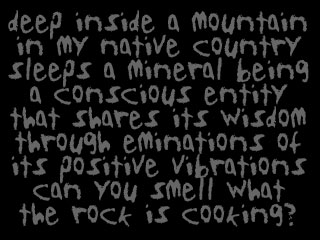 deep inside a mountain
in my native country
sleeps a mineral being
a conscious entity
that shares its wisdom
through eminations of
its positive vibrations
can you smell what
the rock is cooking?